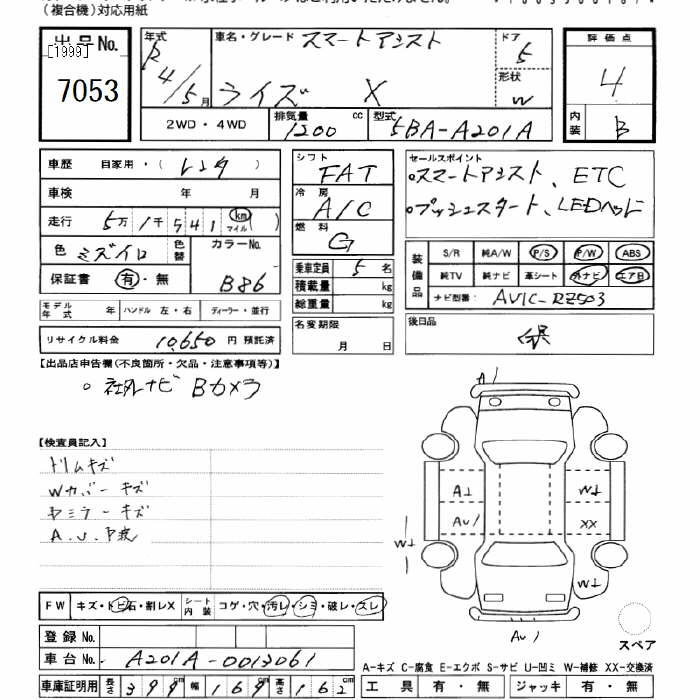 (複合機)対応用紙
出品No.
[1999]
7053
年式 車名・グレード スマートアシスト ドア 5 評価点
R 4/5月 ライズ X 形状 W 4
2WD・4WD 排気量 1200 cc 型式 5BA-A201A 内装 B
車歴 自家用・(レンタ)
車検 年 月
走行 5万1千541 km マイル ( )
色 ミズイロ 色替 カラーNo. B86
保証書 有・無
モデル年式 年 ハンドル 左・右 ディーラー・並行
リサイクル料金 10,650 円 預託済
シフト FAT
冷房 A/C
燃料 G
乗車定員 5 名
積載量 kg
総重量 kg
名変期限 月 日
セールスポイント
○スマートアシスト、ETC
○プッシュスタート、LEDヘッド
装備品 S/R 純A/W P/S P/W ABS
純TV 純ナビ 革シート 外ナビ エアB
ナビ型番: AVIC-RZ503
後日品 保
【出品店申告欄(不良箇所・欠品・注意事項等)】
○ 社外ナビ Bカメラ
【検査員記入】
トリムキズ
Wカバーキズ
ヤミラーキズ
A.U.P波
A/
A⊥ W⊥
AU/ XX
W⊥ W⊥
AU/
スペア
FW キズ・トビ石・割レX シート内装 コゲ・穴・汚レ・シミ・破レ・スレ
登録No.
車台No. A201A-0013061
車庫証明用 長さ 399 cm 幅 169 cm 高さ 162 cm
A-キズ C-腐食 E-エクボ S-サビ U-凹ミ W-補修 XX-交換済
工具 有・無 ジャッキ 有・無